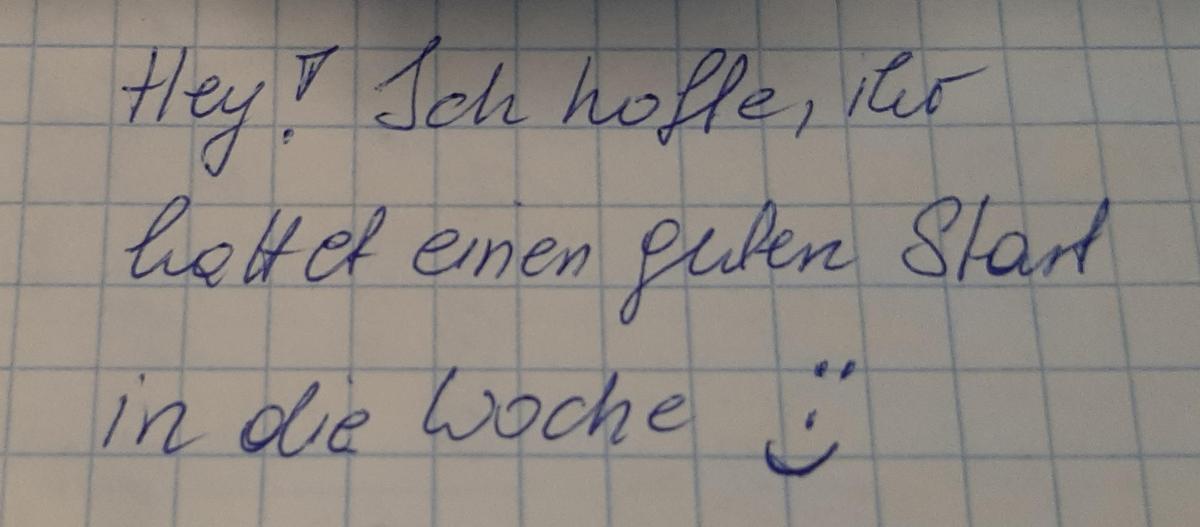 Hey! Ich hoffe, ihr
hattet einen guten Start
in die Woche